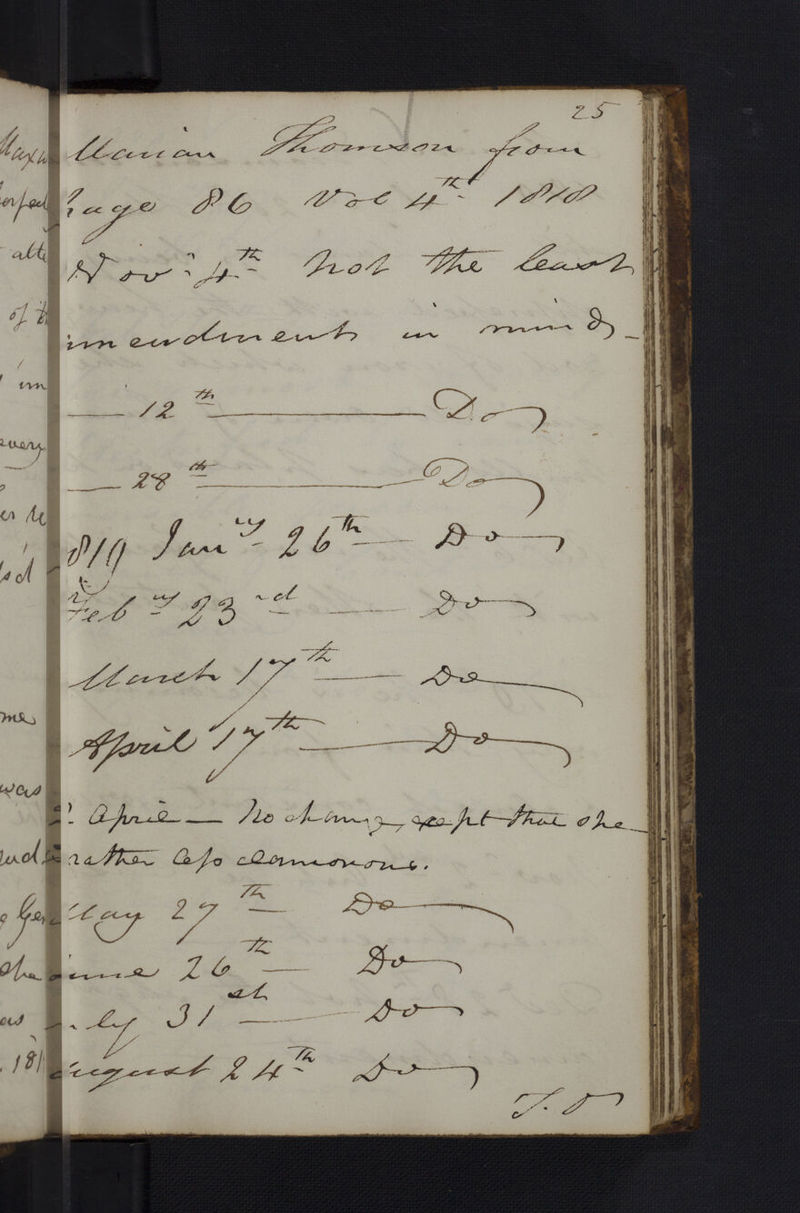 25
Marian Thomson from
page 86 Vol 4th 1818
Novr 4th Not the least
amendment in mind -
— 12th — Do
— 28th — Do
1819 Jany 26th — Do
Feby 23rd — Do
March 17th — Do
April 17th — Do
April — No change, exept that she
rather less clamorous.
May 27th — Do
June 26th — Do
July 31st — Do
August 24th Do
T. O
alte
of
im
every
me
was
she
as
181